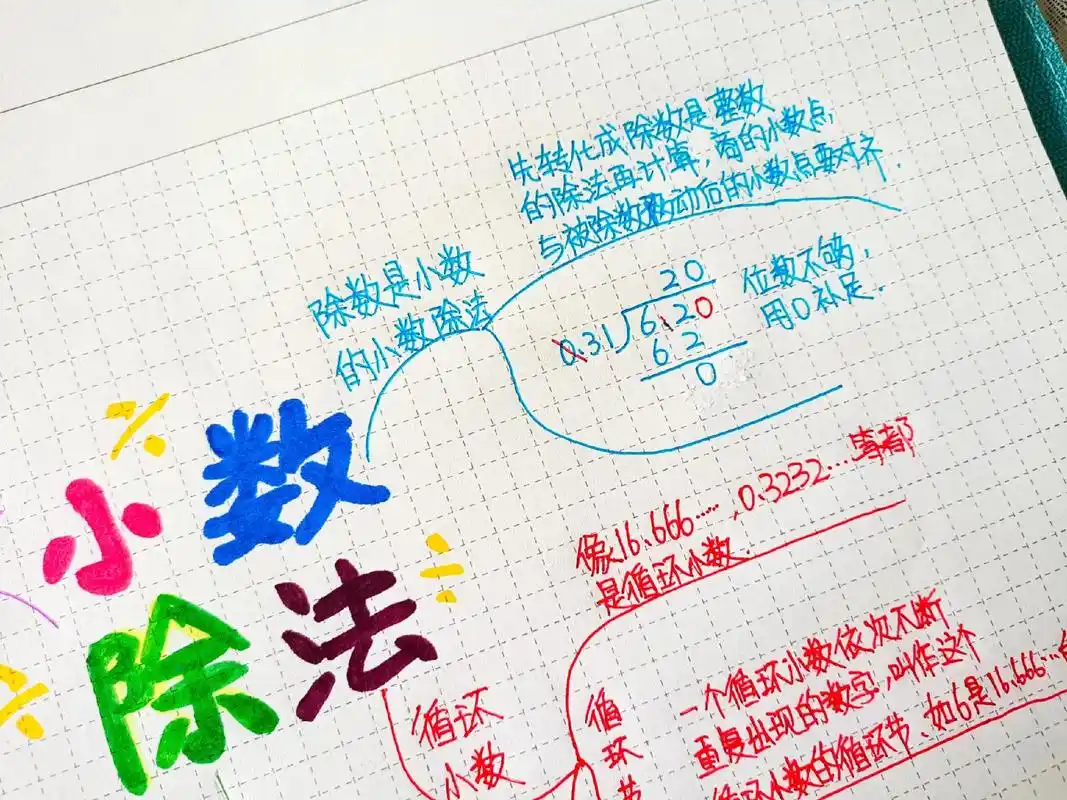 先转化成除数是整数
的除法再计算，商的小数点
与被除数移动后的小数点要对齐.
除数是小数
的小数除法
20
0.31 6.20
62
0
位数不够，
用0补足.
小数
除法
像16.666……，0.3232…等都
是循环小数.
循环
小数
循
环
节
一个循环小数依次不断
重复出现的数字，叫作这个
循环小数的循环节、如6是16.666…